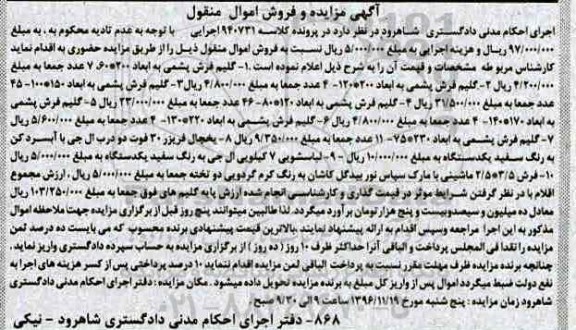 آگهی مزایده و فروش اموال منقول
اجرای احکام مدنی دادگستری شاهرود در نظر دارد در پرونده کلاسه ۹۴۰۷۳۱ اجرایی با توجه به عدم تادیه محکوم به ، به مبلغ
۹۷/۰۰۰/۰۰۰ ریال و هزینه اجرایی به مبلغ ۵/۰۰۰/۰۰۰ ریال نسبت به فروش اموال منقول ذیل را از طریق مزایده حضوری به اقدام نماید
کارشناس مربوطه مشخصات و قیمت آن را به شرح ذیل اعلام نموده است .۱- گلیم فرش پشمی به ابعاد ۲۰۰*۶۰ ۷ عدد جمعا به مبلغ
۴/۲۰۰/۰۰۰ ریال ۲-گلیم فرش پشمی به ابعاد ۲۰۰*۱۲۰- ۴ عدد جمعا به مبلغ ۴/۸۰۰/۰۰۰ ریال ۳- گلیم فرش پشمی به ابعاد ۱۵۰*۱۰۰- ۴۵
عدد جمعا به مبلغ ۳۱/۵۰۰/۰۰۰ ریال ۴- گلیم فرش پشمی به ابعاد ۱۲۰*۸۰- ۴۶ عدد جمعا به مبلغ ۲۳/۰۰۰/۰۰۰ ریال ۵- گلیم فرش پشمی
به ابعاد ۱۷۰*۱۴۰- ۴ عدد جمعا به مبلغ ۴/۸۰۰/۰۰۰ ریال ۶- گلیم فرش پشمی به ابعاد ۲۲۰*۱۳۰- ۴ عدد جمعا به مبلغ ۵/۶۰۰/۰۰۰ ریال
۷- گلیم فرش پشمی به ابعاد ۲۳۰*۷۵- ۱۱ عدد جمعا به مبلغ ۹/۳۵۰/۰۰۰ ریال ۸- یخچال فریزر ۳۰ فوت دو درب ال جی با آبسرد کن
به رنگ سفید یکدستگاه به مبلغ ۱۰/۰۰۰/۰۰۰ ریال ۹- لباسشویی ۷ کیلویی ال جی به رنگ سفید یکدستگاه به مبلغ ۵/۰۰۰/۰۰۰ ریال
۱۰- فرش ۳/۵*۲/۵ ماشینی با مارک سپاس نور بیدگل کاشان به رنگ کرم گردویی دو تخته جمعا به مبلغ ۵/۰۰۰/۰۰۰ ریال ، ارزش مجموع
اقلام با در نظر گرفتن شرایط موثر در قیمت گذاری و کارشناسی انجام شده ارزش پایه گلیم های فوق جمعا به مبلغ ۱۰۳/۲۵۰/۰۰۰ ریال
معادل ده میلیون و سیصدوبیست و پنج هزار تومان بر آورد میگردد. لذا طالبین میتوانند پنج روز قبل از برگزاری مزایده جهت ملاحظه اموال
مذکور به این اجرا مراجعه وسپس اقدام به ارائه پیشنهاد نمایند .بالاترین قیمت پیشنهادی برنده محسوب که می بایست ده درصد ثمن
مزایده را نقدا فی المجلس پرداخت و الباقی آنرا حداکثر ظرف ۱۰ روز ( ده روز ) از برگزاری مزایده به حساب سپرده دادگستری واریز نماید .
چنانچه برنده مزایده ظرف مهلت مقرر نسبت به پرداخت الباقی ثمن مزایده اقدام ننماید ۱۰ درصد پرداختی پس از کسر هزینه های اجرا به
نفع دولت ضبط میگردد اموال پس از واریز کل مبلغ به برنده مزایده تحویل داده میشود . مکان مزایده : دفتر اجرای احکام مدنی دادگستری
شاهرود زمان مزایده : پنج شنبه مورخ ۱۳۹۶/۱۱/۱۹ ساعت ۹ الی ۹/۳۰ صبح
۸۶۸- دفتر اجرای احکام مدنی دادگستری شاهرود - نیکی